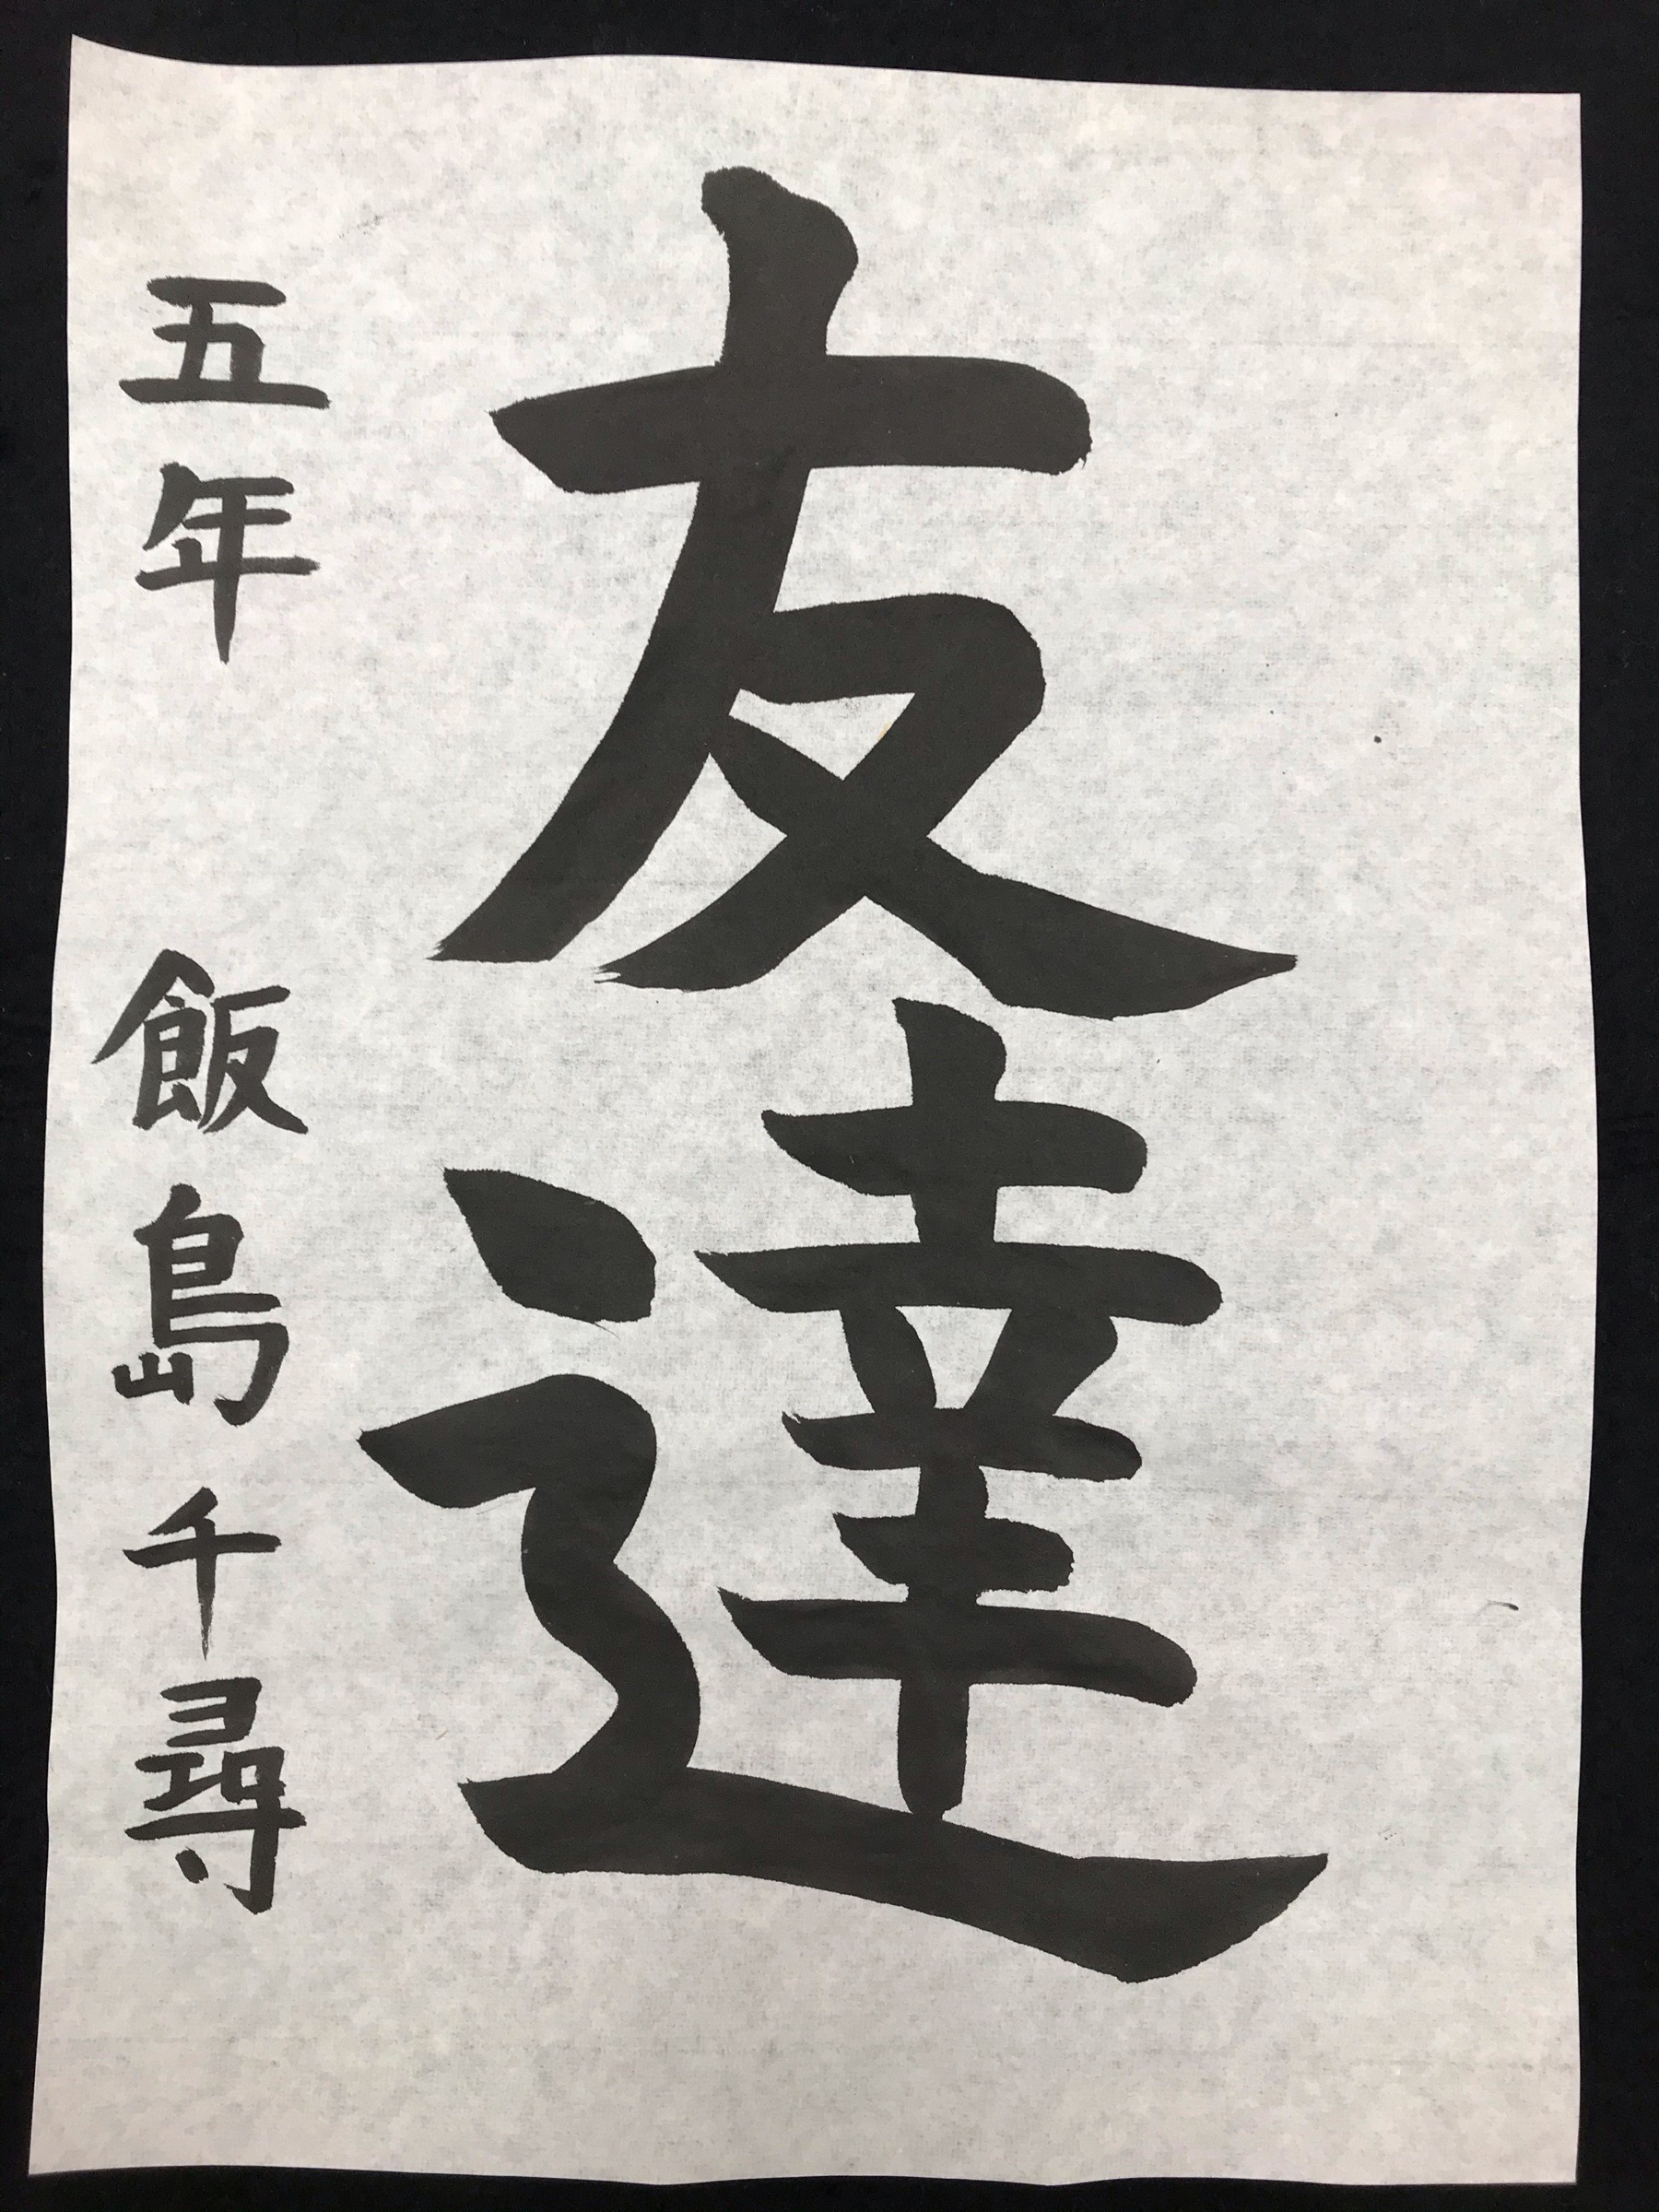 友達
五年 飯島千尋